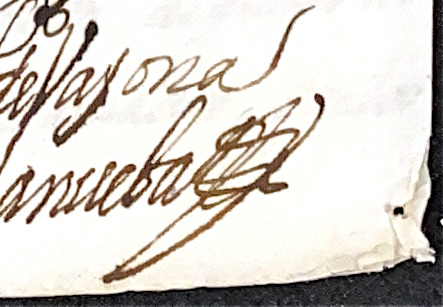 de Vayona
lanueba